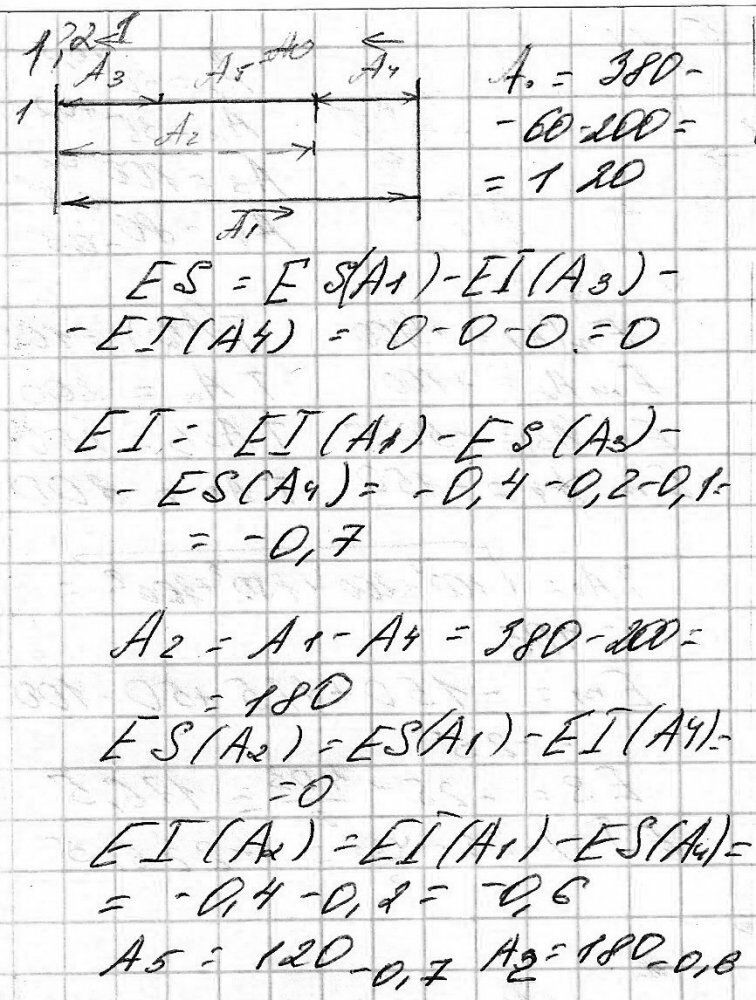 1,2 1
A3 A5 A0 A4
1
A2
A1
A. = 380 -
- 60 - 200 =
= 120
ES = ES(A1) - EI(A3) -
- EI(A4) = 0 - 0 - 0 = 0
EI = EI(A1) - ES(A3) -
- ES(A4) = - 0,4 - 0,2 - 0,1 =
= - 0,7
A2 = A1 - A4 = 380 - 200 =
= 180
ES(A2) = ES(A1) - EI(A4) =
= 0
EI(A2) = EI(A1) - ES(A4) =
= - 0,4 - 0,2 = - 0,6
A5 = 120 -0,7 A2 = 180 -0,6